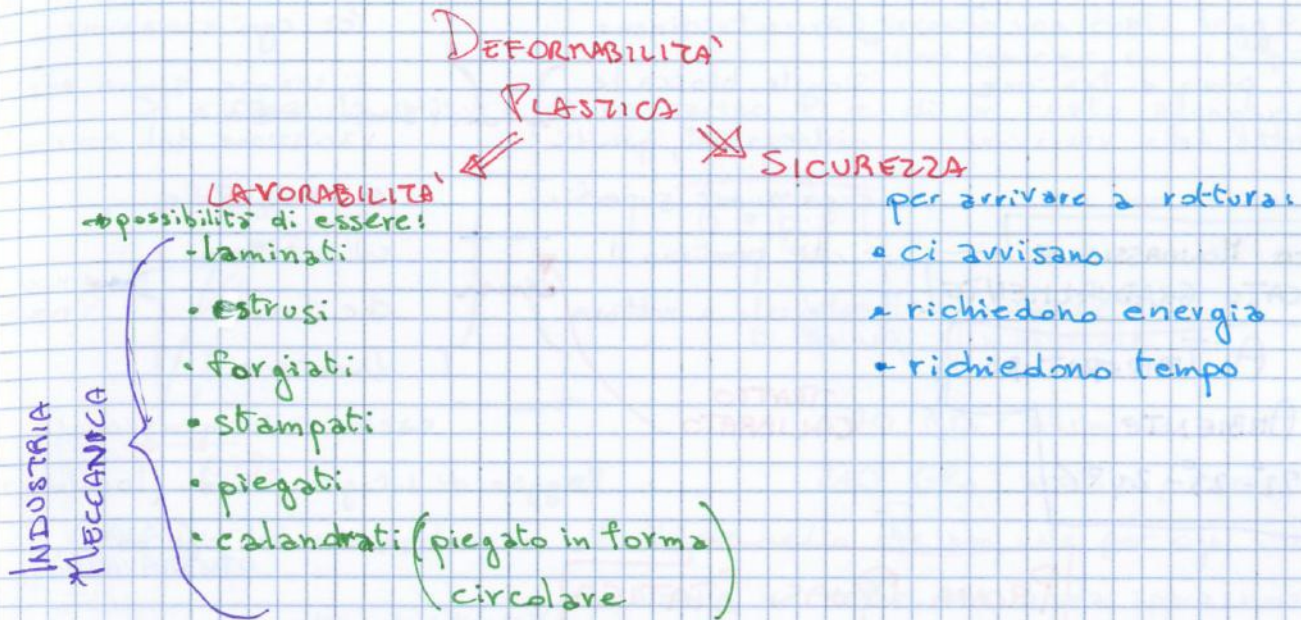 DEFORMABILITA'
PLASTICA
LAVORABILITA'
→ possibilità di essere:
- laminati
• estrusi
• forgiati
• stampati
• piegati
• calandrati (piegato in forma
circolare)
INDUSTRIA
MECCANICA
SICUREZZA
per arrivare a rottura:
• ci avvisano
• richiedono energia
• richiedono tempo